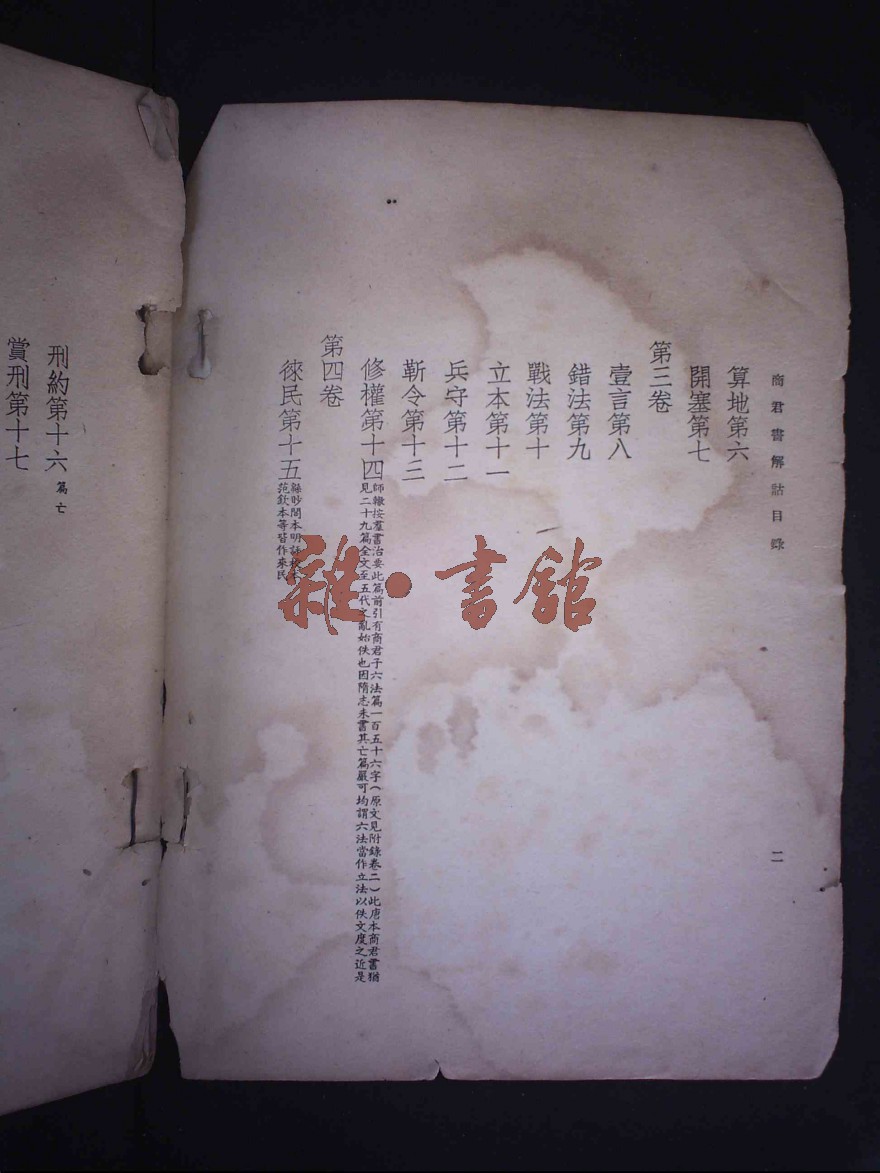 商君書解詁目錄
二
算地第六
開塞第七
第三卷
壹言第八
錯法第九
戰法第十
立本第十一
兵守第十二
靳令第十三
修權第十四
師轍按羣書治要此篇前引有商君子六法篇一百五十六字(原文見附錄卷二)此唐本商君書猶
見二十九篇全文至五代之亂始佚也因隋志未書其亡篇嚴可均謂六法當作立法以佚文度之近是
第四卷
徠民第十五
緜眇閣本明
范欽本等皆作來民
刑約第十六
篇亡
賞刑第十七
雜·書館